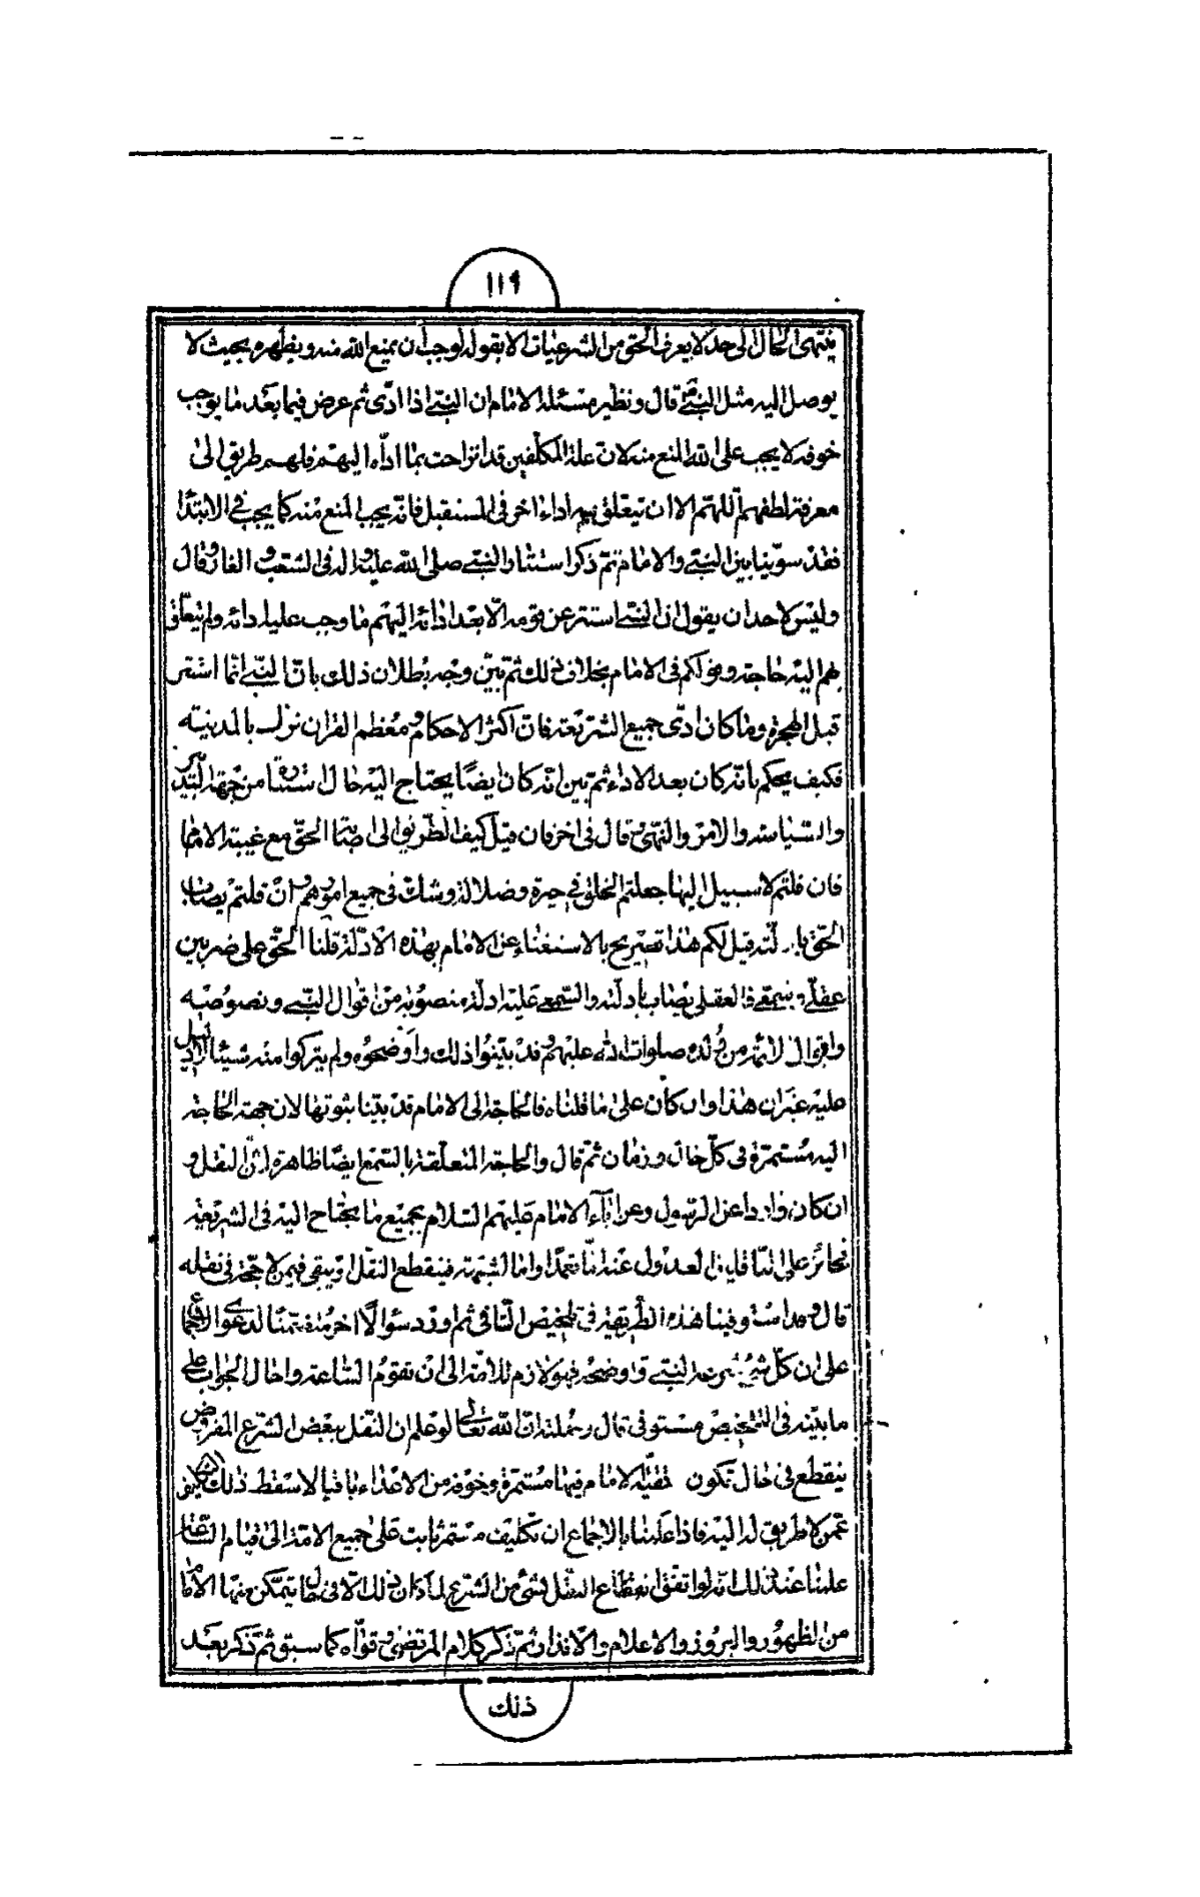 ١١٩
ينتهى الحال الى حد لا يعرف الحق من الشرعيات الا بقوله لوجب ان يمنع الله منه ويظهره بحيث لا
يوصل اليه مثل النبى قال ونظير مسئلة الامام ان النبى اذا ادّى ثم عرض فيما بعد ما يوجب
خوفه لا يجب على الله المنع منه لان علة المكلفين قد انزاحت بما ادّاه اليهم فلهم طريق الى
معرفة لطفهم اللهم الا ان يتعلق بهم اداء اخر فى المستقبل فانه يجب المنع منه كما يجب فى الابتداء
فقد سوّينا بين النبى والامام ثم ذكر استتار النبى صلى الله عليه واله فى الشعب والغار وقال
وليس لاحد ان يقول ان النبى استتر عن قومه الّا بعد ادائه اليهم ما وجب عليه ادائه ولم يتعلّق
بهم اليه حاجة وقولكم فى الامام بخلاف ذلك ثم بيّن وجه بطلان ذلك بان النبى انما استتر
قبل الهجرة وما كان ادّى جميع الشريعة فان اكثر الاحكام ومعظم القران نزل بالمدينة
فكيف يحكم بانه كان بعد الاداء ثم بين انه كان ايضًا يحتاج اليه حال استتاره من جهة التدبير
والسياسة والامر والنهى و قال فى اخر فان قيل كيف الطريق الى اصابة الحق مع غيبة الامام
فان قلتم لا سبيل اليها جعلتم الخلق فى حيرة وضلالة وشك فى جميع امورهم وان قلتم يصاب
الحق بادلته قيل لكم هذا تصريح بالاستغناء عن الامام بهذه الادلة قلنا الحق على ضربين
عقلى وسمعى فالعقلى يصاب بادلته والسمعى عليه ادلة منصوبة من اقوال النبى ونصوصه
واقوال الائمة من ولده صلوات الله عليهم وقد بيّنوا ذلك واوضحوه ولم يتركوا منه شيئا لا دليل
عليه غير ان هذا وان كان على ما قلناه فالحاجة الى الامام قد بيّنا ثبوتها لان جهة الحاجة
اليه مستمرة فى كل حال وزمان ثم قال والحاجة المتعلقة بالسمع ايضًا ظاهرة لان النقل و
ان كان واردا عن الرسول وعن اباء الامام عليهم السلام بجميع ما يحتاج اليه فى الشريعة
فجائز على الناقلين العدول عنه اما تعمدًا واما لشبهة فينقطع النقل او يبقى فيمن لا حجة فى نقله
قال وقد استوفينا هذه الطريقة فى تلخيص الشافى ثم اورد سؤالًا اخر متضمنًا لدعوى الاجماع
على ان كل شىء شرعه النبى واوضحه فهو لازم للامة الى ان تقوم الساعة واحال الجواب على
ما بيّنه فى التلخيص مستوفى قال وجملته ان الله تعالى لو علم ان النقل ببعض الشرع المفروض
ينقطع فى حال تكون تقيّة الامام فيها مستمرة وخوفه من الاعداء باقيا لاسقط ذلك التكليف
عمن لا طريق له اليه فاذا علمنا بالاجماع ان تكليف مستمر ثابت على جميع الامة الى قيام الساعة
علمنا عند ذلك انه لو اتفق انقطاع النقل بشىء من الشرع لما كان ذلك الا فى حال يتمكن فيها الامام
من الظهور والبروز والاعلام والانذار ثم ذكر كلام المرتضى وقوّاه كما سبق ثم ذكر بعد
ذلك